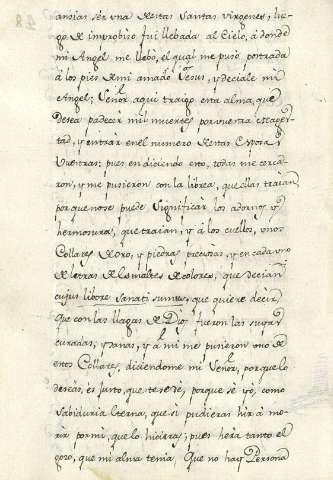 ansias ser una destas santas Virgenes, lue
go de improbiso fui llebada al Cielo, a donde
mi Angel me llebó, el qual me puso postrada
á los pies de mi amado Jesus, y deciale mi
Angel; Señor aqui traigo esta alma, que
desea padecer mil muertes por vuestra
y entrar en el numero destas Esposas
Vuestras: pues en diciendo esto, todas me cerca
ron, y me pusieron con la librea, que ellas traian,
porque no se puede significar los adornos, y
hermosura, que traian, y á los cuellos, unos
Collares de oro, y piedras preciosas, y en cada uno
de letras de Esmaltes de colores, que decian
cujus libore sanati sumus, que quiere decir,
Que con las llagas de Dios fueron las suyas
curadas, y sanas, y á mi me pusieron uno de
estos Collares, diciendome mi Señor, porque lo
deseas, es justo, que te se dé, porque sé yo, como
Sabiduria Eterna, que si pudieras hir á mo
rir por mi, que lo hicieras; pues hera tanto el
gozo, que mi alma tenia, Que no hay Persona